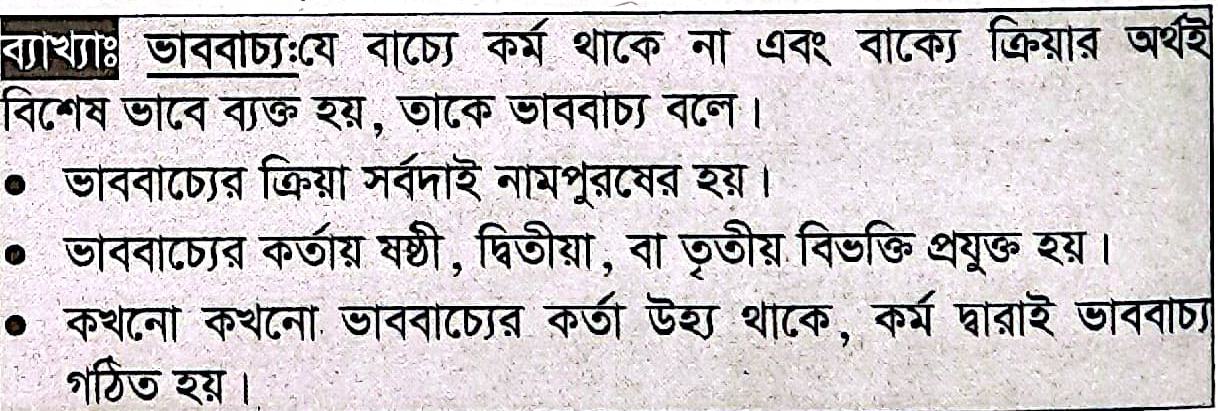 ব্যাখ্যাঃ ভাববাচ্য:যে বাচ্যে কর্ম থাকে না এবং বাক্যে ক্রিয়ার অর্থই
বিশেষ ভাবে ব্যক্ত হয়, তাকে ভাববাচ্য বলে।
• ভাববাচ্যের ক্রিয়া সর্বদাই নামপুরষের হয়।
• ভাববাচ্যের কর্তায় ষষ্ঠী, দ্বিতীয়া, বা তৃতীয় বিভক্তি প্রযুক্ত হয়।
• কখনো কখনো ভাববাচ্যের কর্তা উহ্য থাকে, কর্ম দ্বারাই ভাববাচ্য
গঠিত হয়।